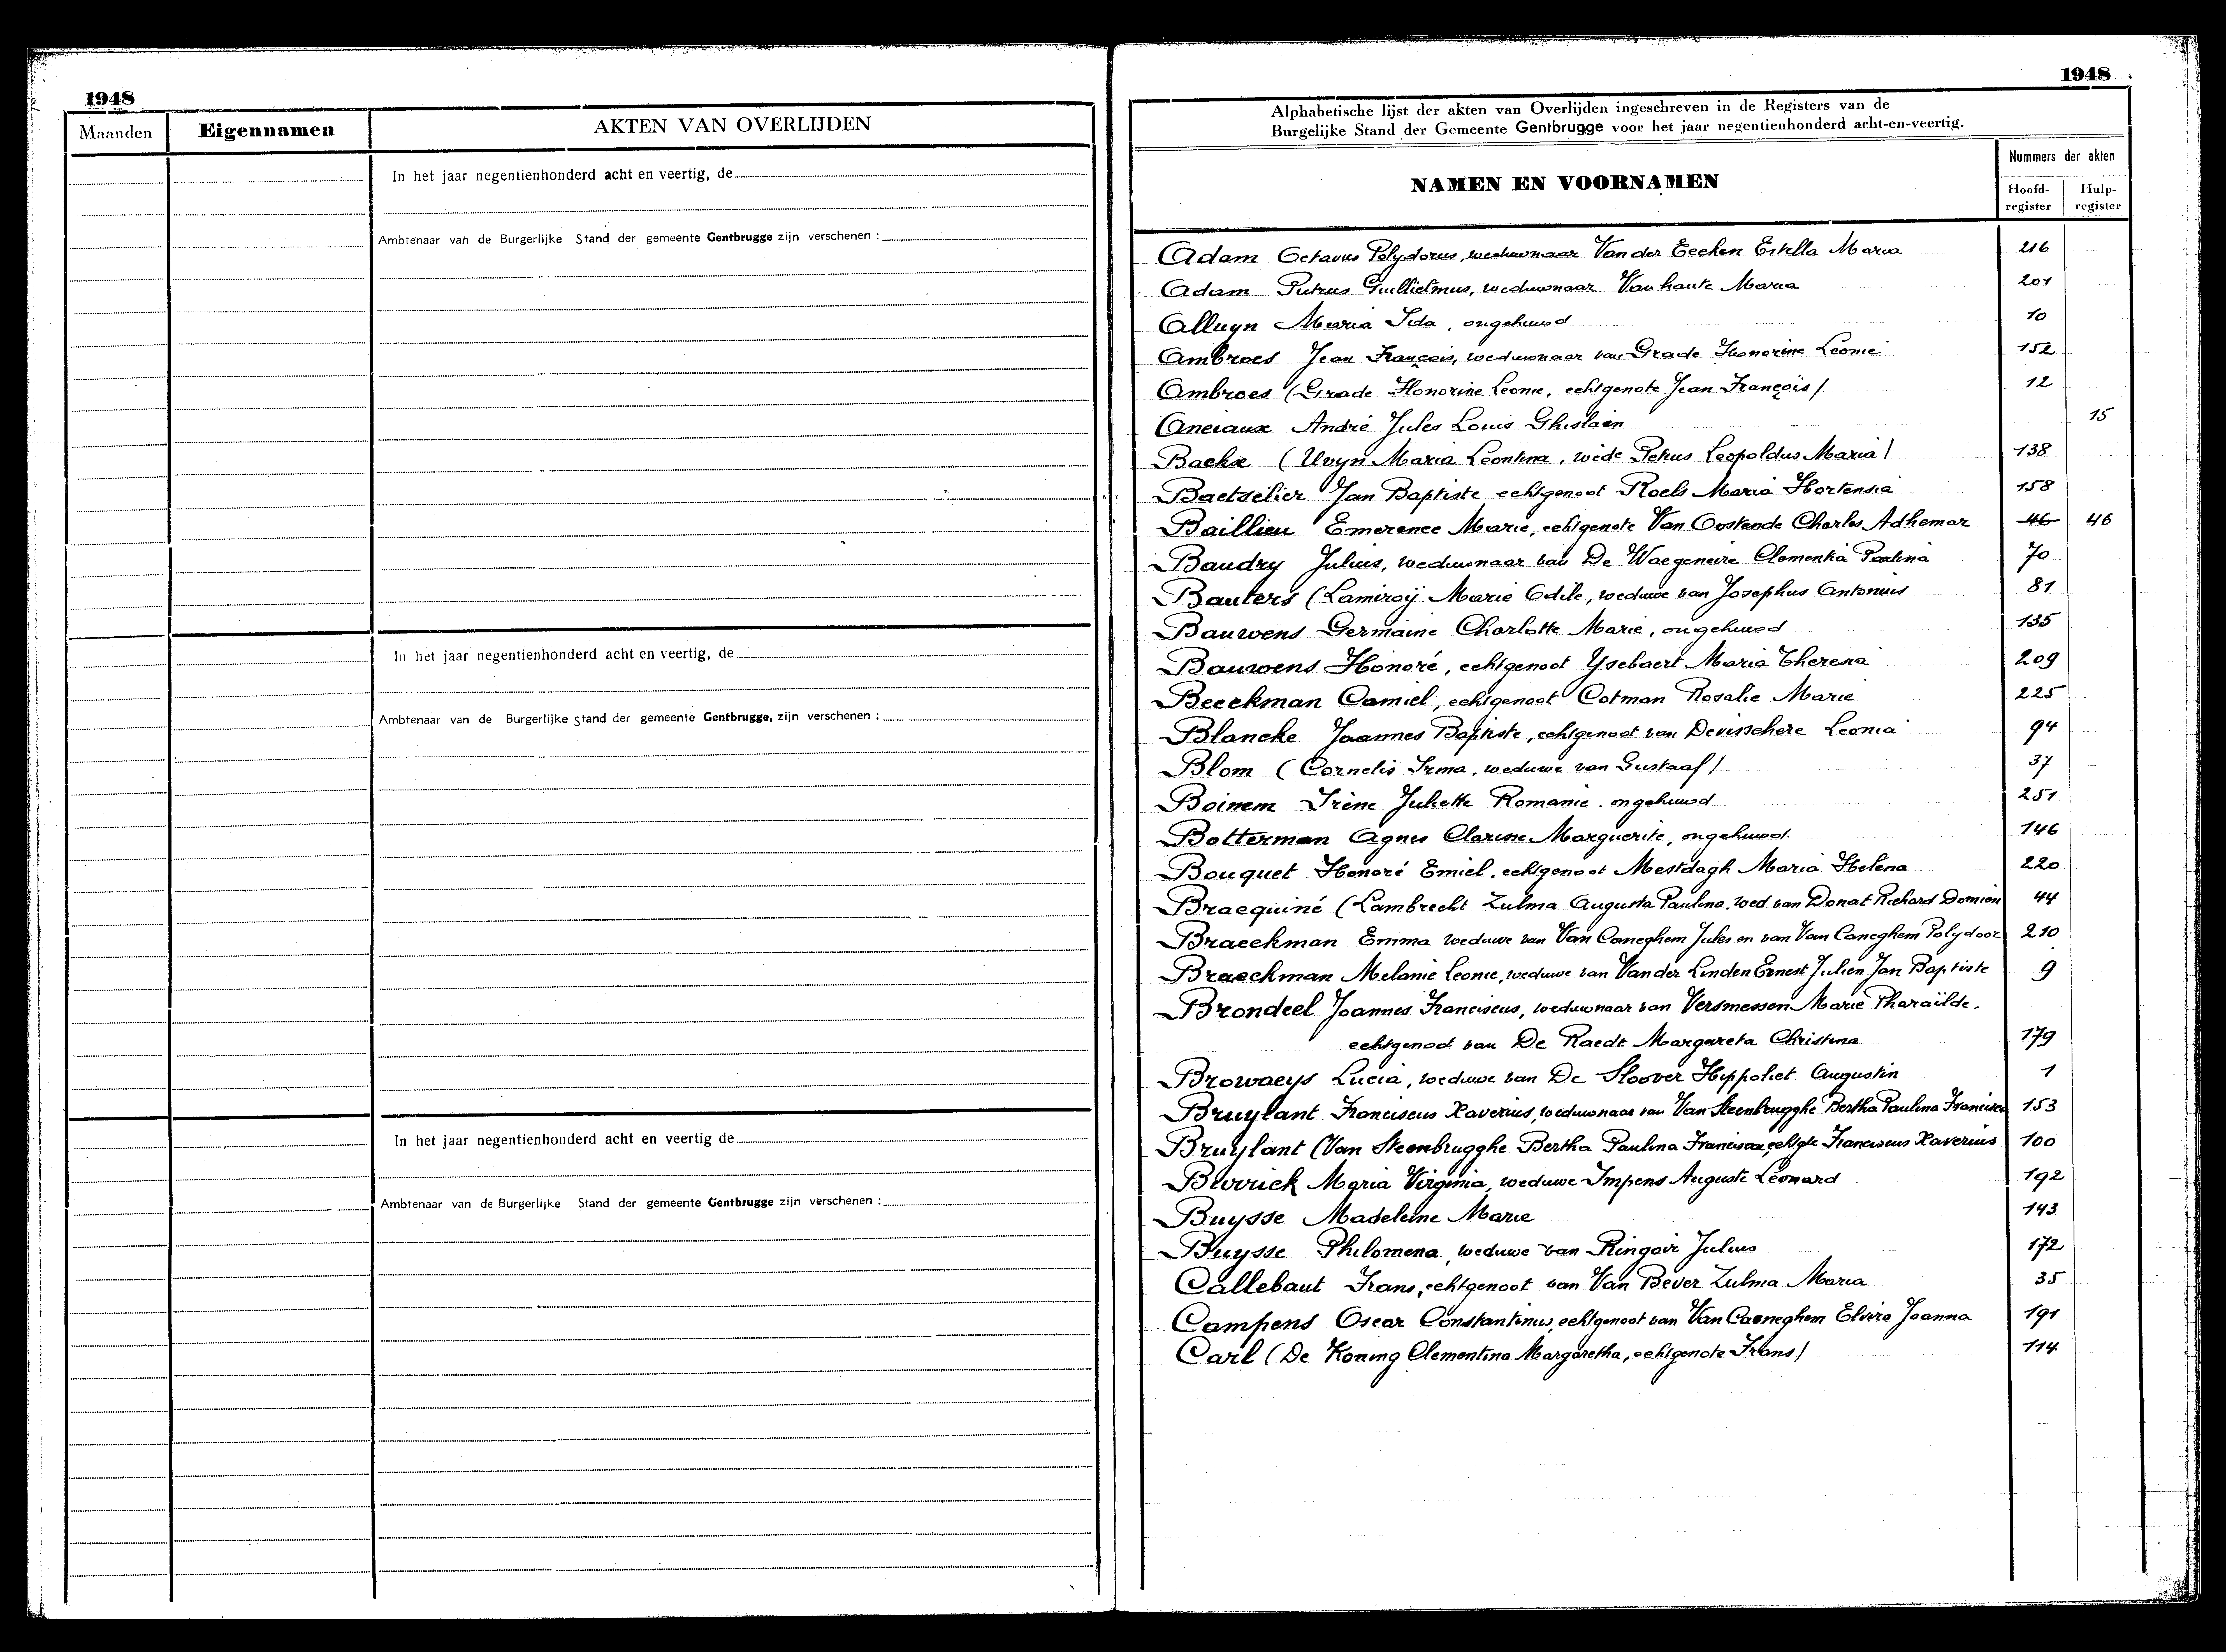 1948
Maanden Eigennamen AKTEN VAN OVERLIJDEN
In het jaar negentienhonderd acht en veertig, de
Ambtenaar van de Burgerlijke Stand der gemeente Gentbrugge zijn verschenen :
In het jaar negentienhonderd acht en veertig, de
Ambtenaar van de Burgerlijke Stand der gemeente Gentbrugge, zijn verschenen :
In het jaar negentienhonderd acht en veertig de
Ambtenaar van de Burgerlijke Stand der gemeente Gentbrugge zijn verschenen :
1948
Alphabetische lijst der akten van Overlijden ingeschreven in de Registers van de
Burgelijke Stand der Gemeente Gentbrugge voor het jaar negentienhonderd acht-en-veertig.
NAMEN EN VOORNAMEN
Nummers der akten
Hoofd-register Hulp-register
Adam Octavus Polydorus, weduwnaar Van der Eecken Estella Maria 216
Adam Petrus Guillielmus, weduwnaar Vanhaute Maria 201
Alluyn Maria Ida, ongehuwd 10
Ambroes Jean François, weduwnaar van Grade Honorine Leonie 152
Ambroes (Grade Honorine Leonie, echtgenote Jean François) 12
Anciaux André Jules Louis Ghislain 15
Backx (Uvyn Maria Leontina, wede Petrus Leopoldus Maria) 138
Baetselier Jan Baptiste echtgenoot Roels Maria Hortensia 158
Baillieu Emerence Marie, echtgenote Van Oostende Charles Adhemar 46 46
Baudry Julius, weduwnaar van De Waegeneire Clementia Paulina 70
Bauters (Lamiroÿ Marie Odile, weduwe van Josephus Antonius 81
Bauwens Germaine Charlotte Marie, ongehuwd 135
Bauwens Honoré, echtgenoot Ysebaert Maria Theresia 209
Beeckman Camiel, echtgenoot Cotman Rosalie Marie 225
Blancke Joannes Baptiste, echtgenoot van Devisschere Leonia 94
Blom (Cornelis Irma, weduwe van Gustaaf) 37
Boinem Irène Juliette Romanie. ongehuwd 251
Botterman Agnes Clarisse Marguerite, ongehuwd. 146
Bouquet Honoré Emiel, echtgenoot Mestdagh Maria Helena 220
Braequiné (Lambrecht Zulma Augusta Paulina, wed van Donat Richard Domien 44
Braeckman Emma weduwe van Van Caneghem Jules en van Van Caneghem Polydoor 210
Braeckman Melanie Leonie, weduwe van Van der Linden Ernest Julien Jan Baptiste 9
Brondeel Joannes Franciscus, weduwnaar van Versmessen Marie Pharaïlde.
echtgenoot van De Raedt Margareta Christina 179
Browaeys Lucia, weduwe van De Sloover Hippoliet Augustin 1
Bruylant Franciscus Xaverius, weduwnaar van Van Steenbrugghe Bertha Paulina Francisca 153
Bruylant (Van Steenbrugghe Bertha Paulina Francisca, echtgte Franciscus Xaverius 100
Maria Virginia, weduwe Impens Auguste Léonard 192
Buysse Madeleine Marie 143
Buysse Philomena, weduwe van Ringoir Julius 172
Callebaut Frans, echtgenoot van Van Bever Zulma Maria 35
Campens Oscar Constantinus, echtgenoot van Van Caeneghem Elvira Joanna 191
Carl (De Koning Clementina Margaretha, echtgenote Frans) 114